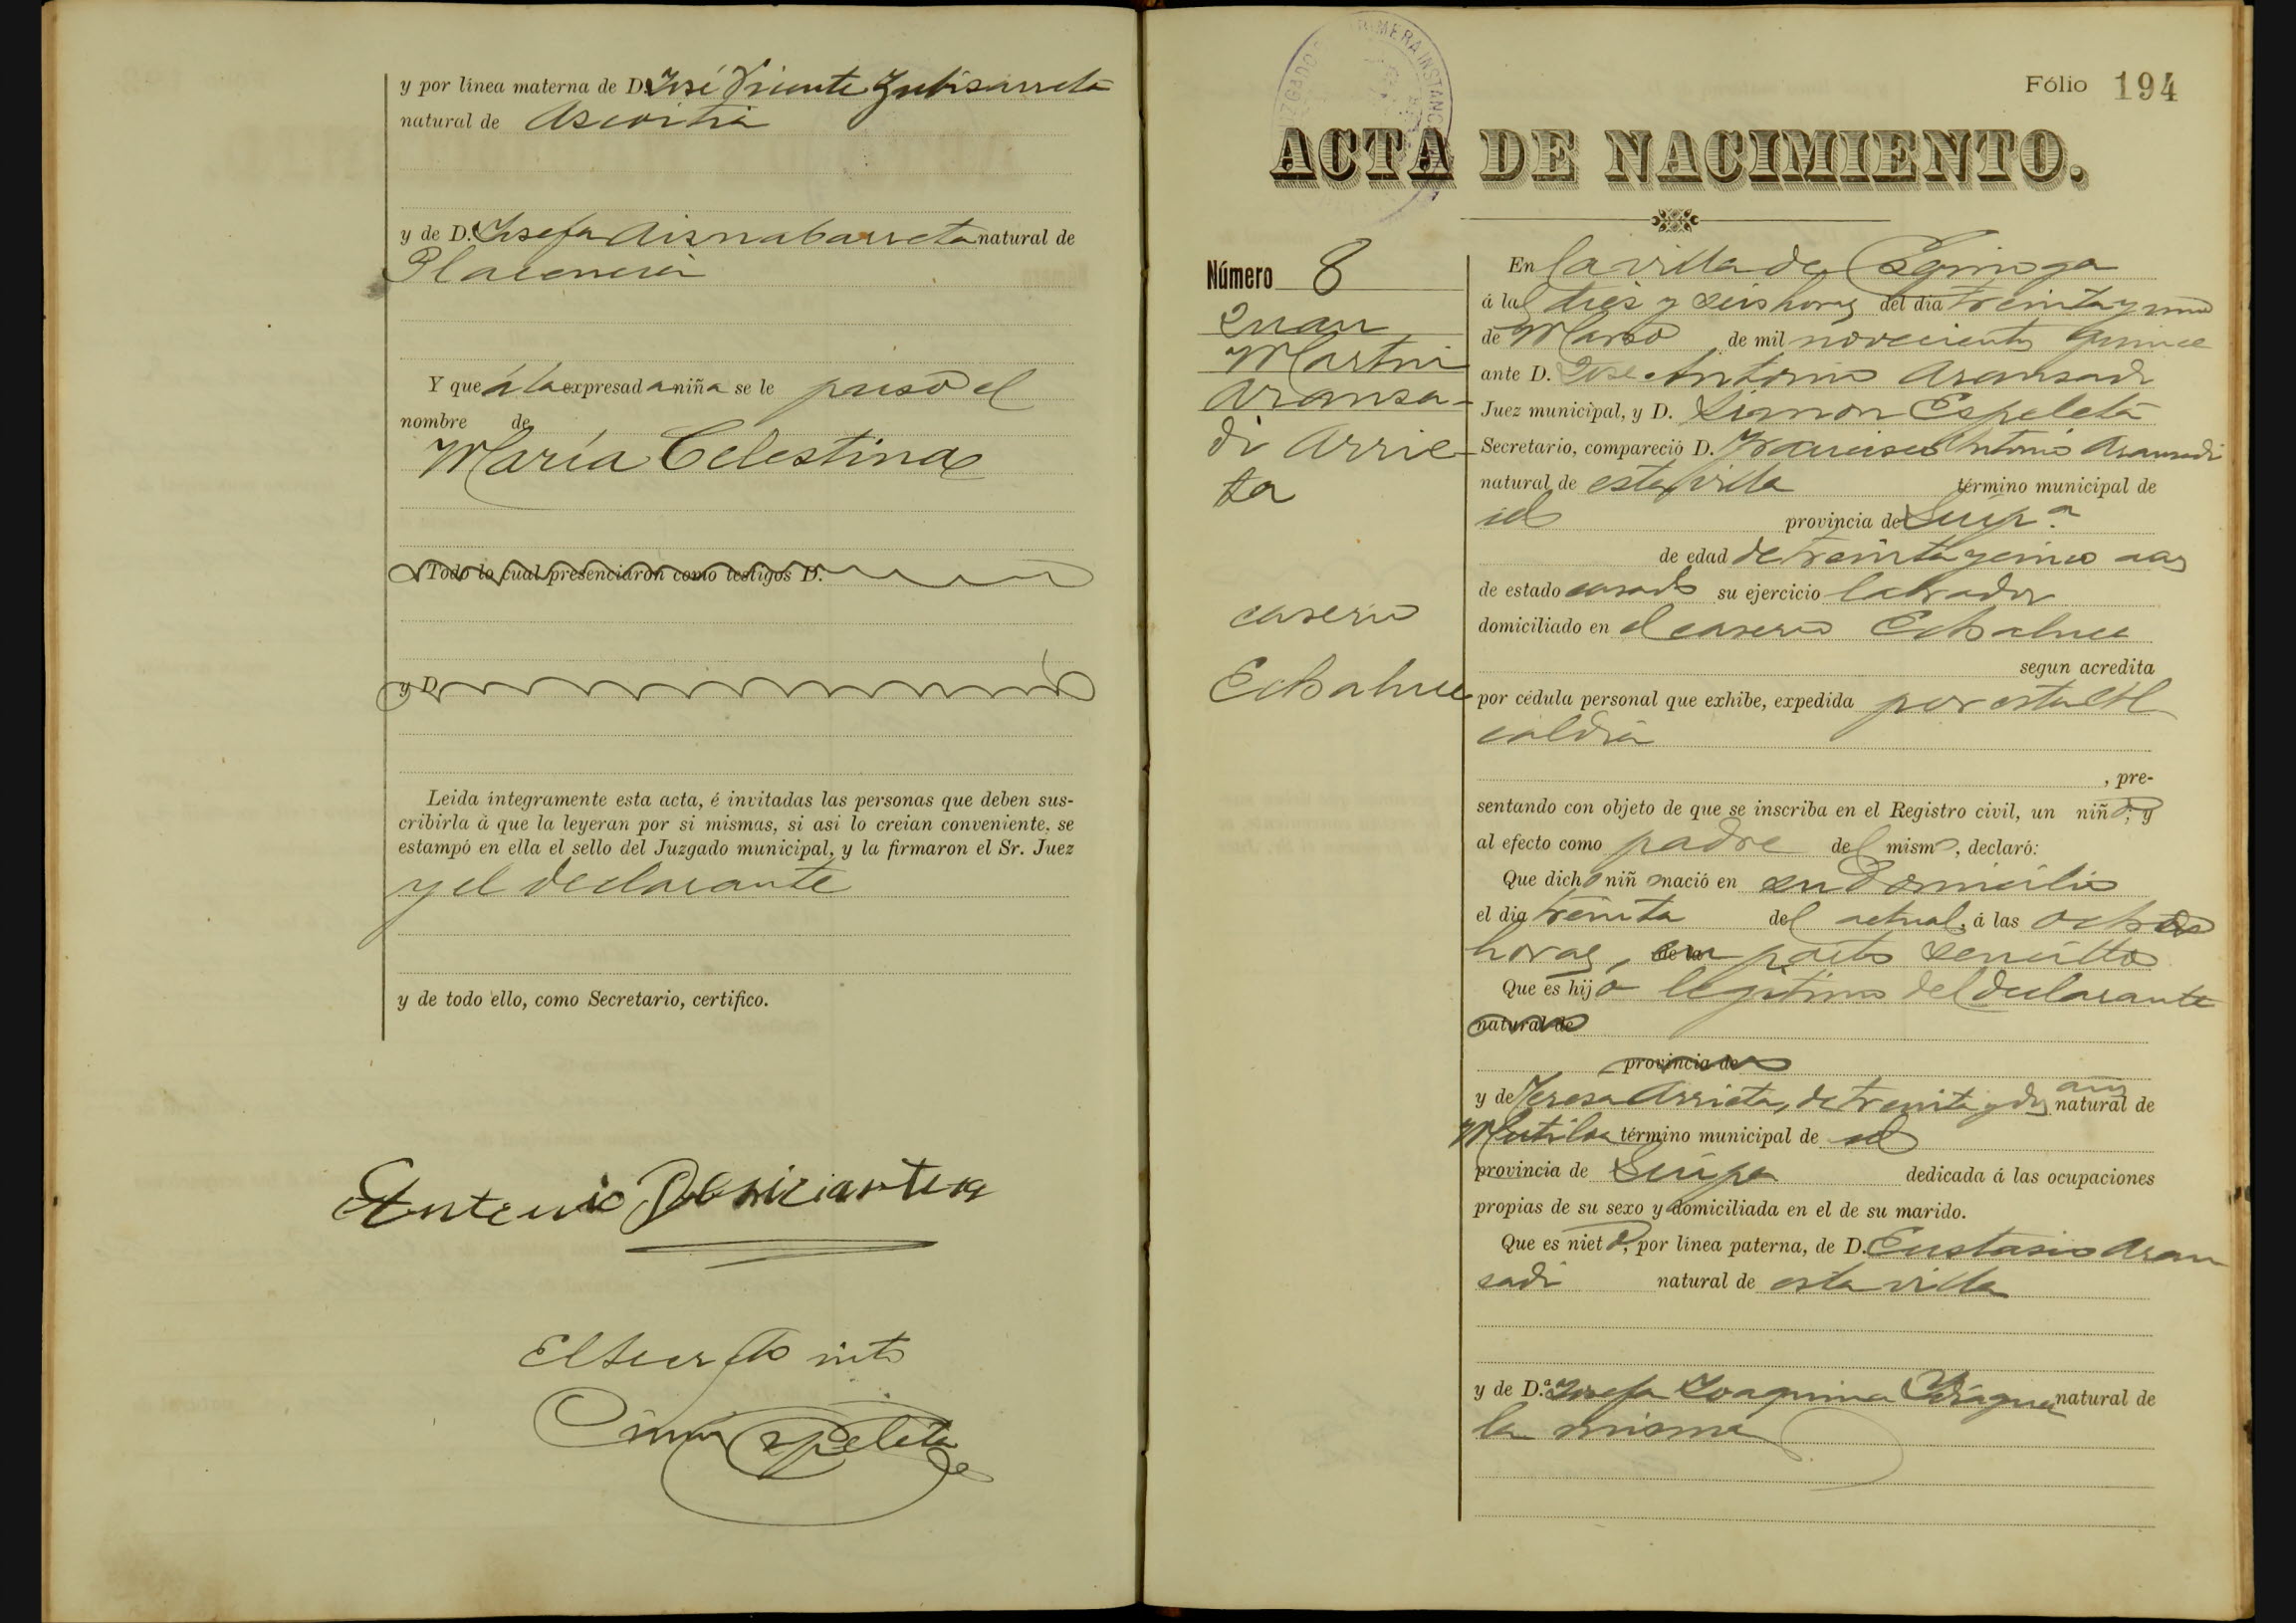 y por línea materna de D. José Vicente Zubisarreta
natural de Ascoitia
y de D.ª Josefa Aisnabarreta natural de
Placencia
Y que á la expresada niña se le puso el
nombre de
María Celestina
Todo lo cual presenciaron como testigos D.
y D.
Leida íntegramente esta acta, é invitadas las personas que deben sus-
cribirla á que la leyeran por si mismas, si asi lo creian conveniente, se
estampó en ella el sello del Juzgado municipal, y la firmaron el Sr. Juez
y el declarante
y de todo ello, como Secretario, certifico.
Antonio
El Secr.º
Espeleta
JUZGADO PRIMERA INSTANC
Fólio 194
ACTA DE NACIMIENTO.
Número 8
Juan
Martin
Aransa-
di Arrie-
ta
caserio
Echaluce
En la villa de
á las dies y seis horas del dia treinta y uno
de Marso de mil novecientos quince
ante D. José Antonio Aransadi
Juez municipal, y D. Simon Espeleta
Secretario, compareció D. Francisco Antonio Aransadi
natural de esta villa término municipal de
id provincia de Guip.ª
de edad de treinta y cinco años
de estado casado su ejercicio labrador
domiciliado en el caserio Echaluce
segun acredita
por cédula personal que exhibe, expedida por esta Al
caldia
, pre-
sentando con objeto de que se inscriba en el Registro civil, un niño; y
al efecto como padre del mismo, declaró:
Que dicho niño nació en su domicilio
el dia treinta del actual, á las ocho
horas, de la parto sencillo
Que es hijo legitimo del declarante
natural de
provincia de
y de Teresa Arrieta, de treinta y dos años natural de
Mutiloa término municipal de id
provincia de Guipa dedicada á las ocupaciones
propias de su sexo y domiciliada en el de su marido.
Que es nieto, por línea paterna, de D. Eustasio Aran
sadi natural de esta villa
y de D.ª Josefa Joaquina natural de
la misma